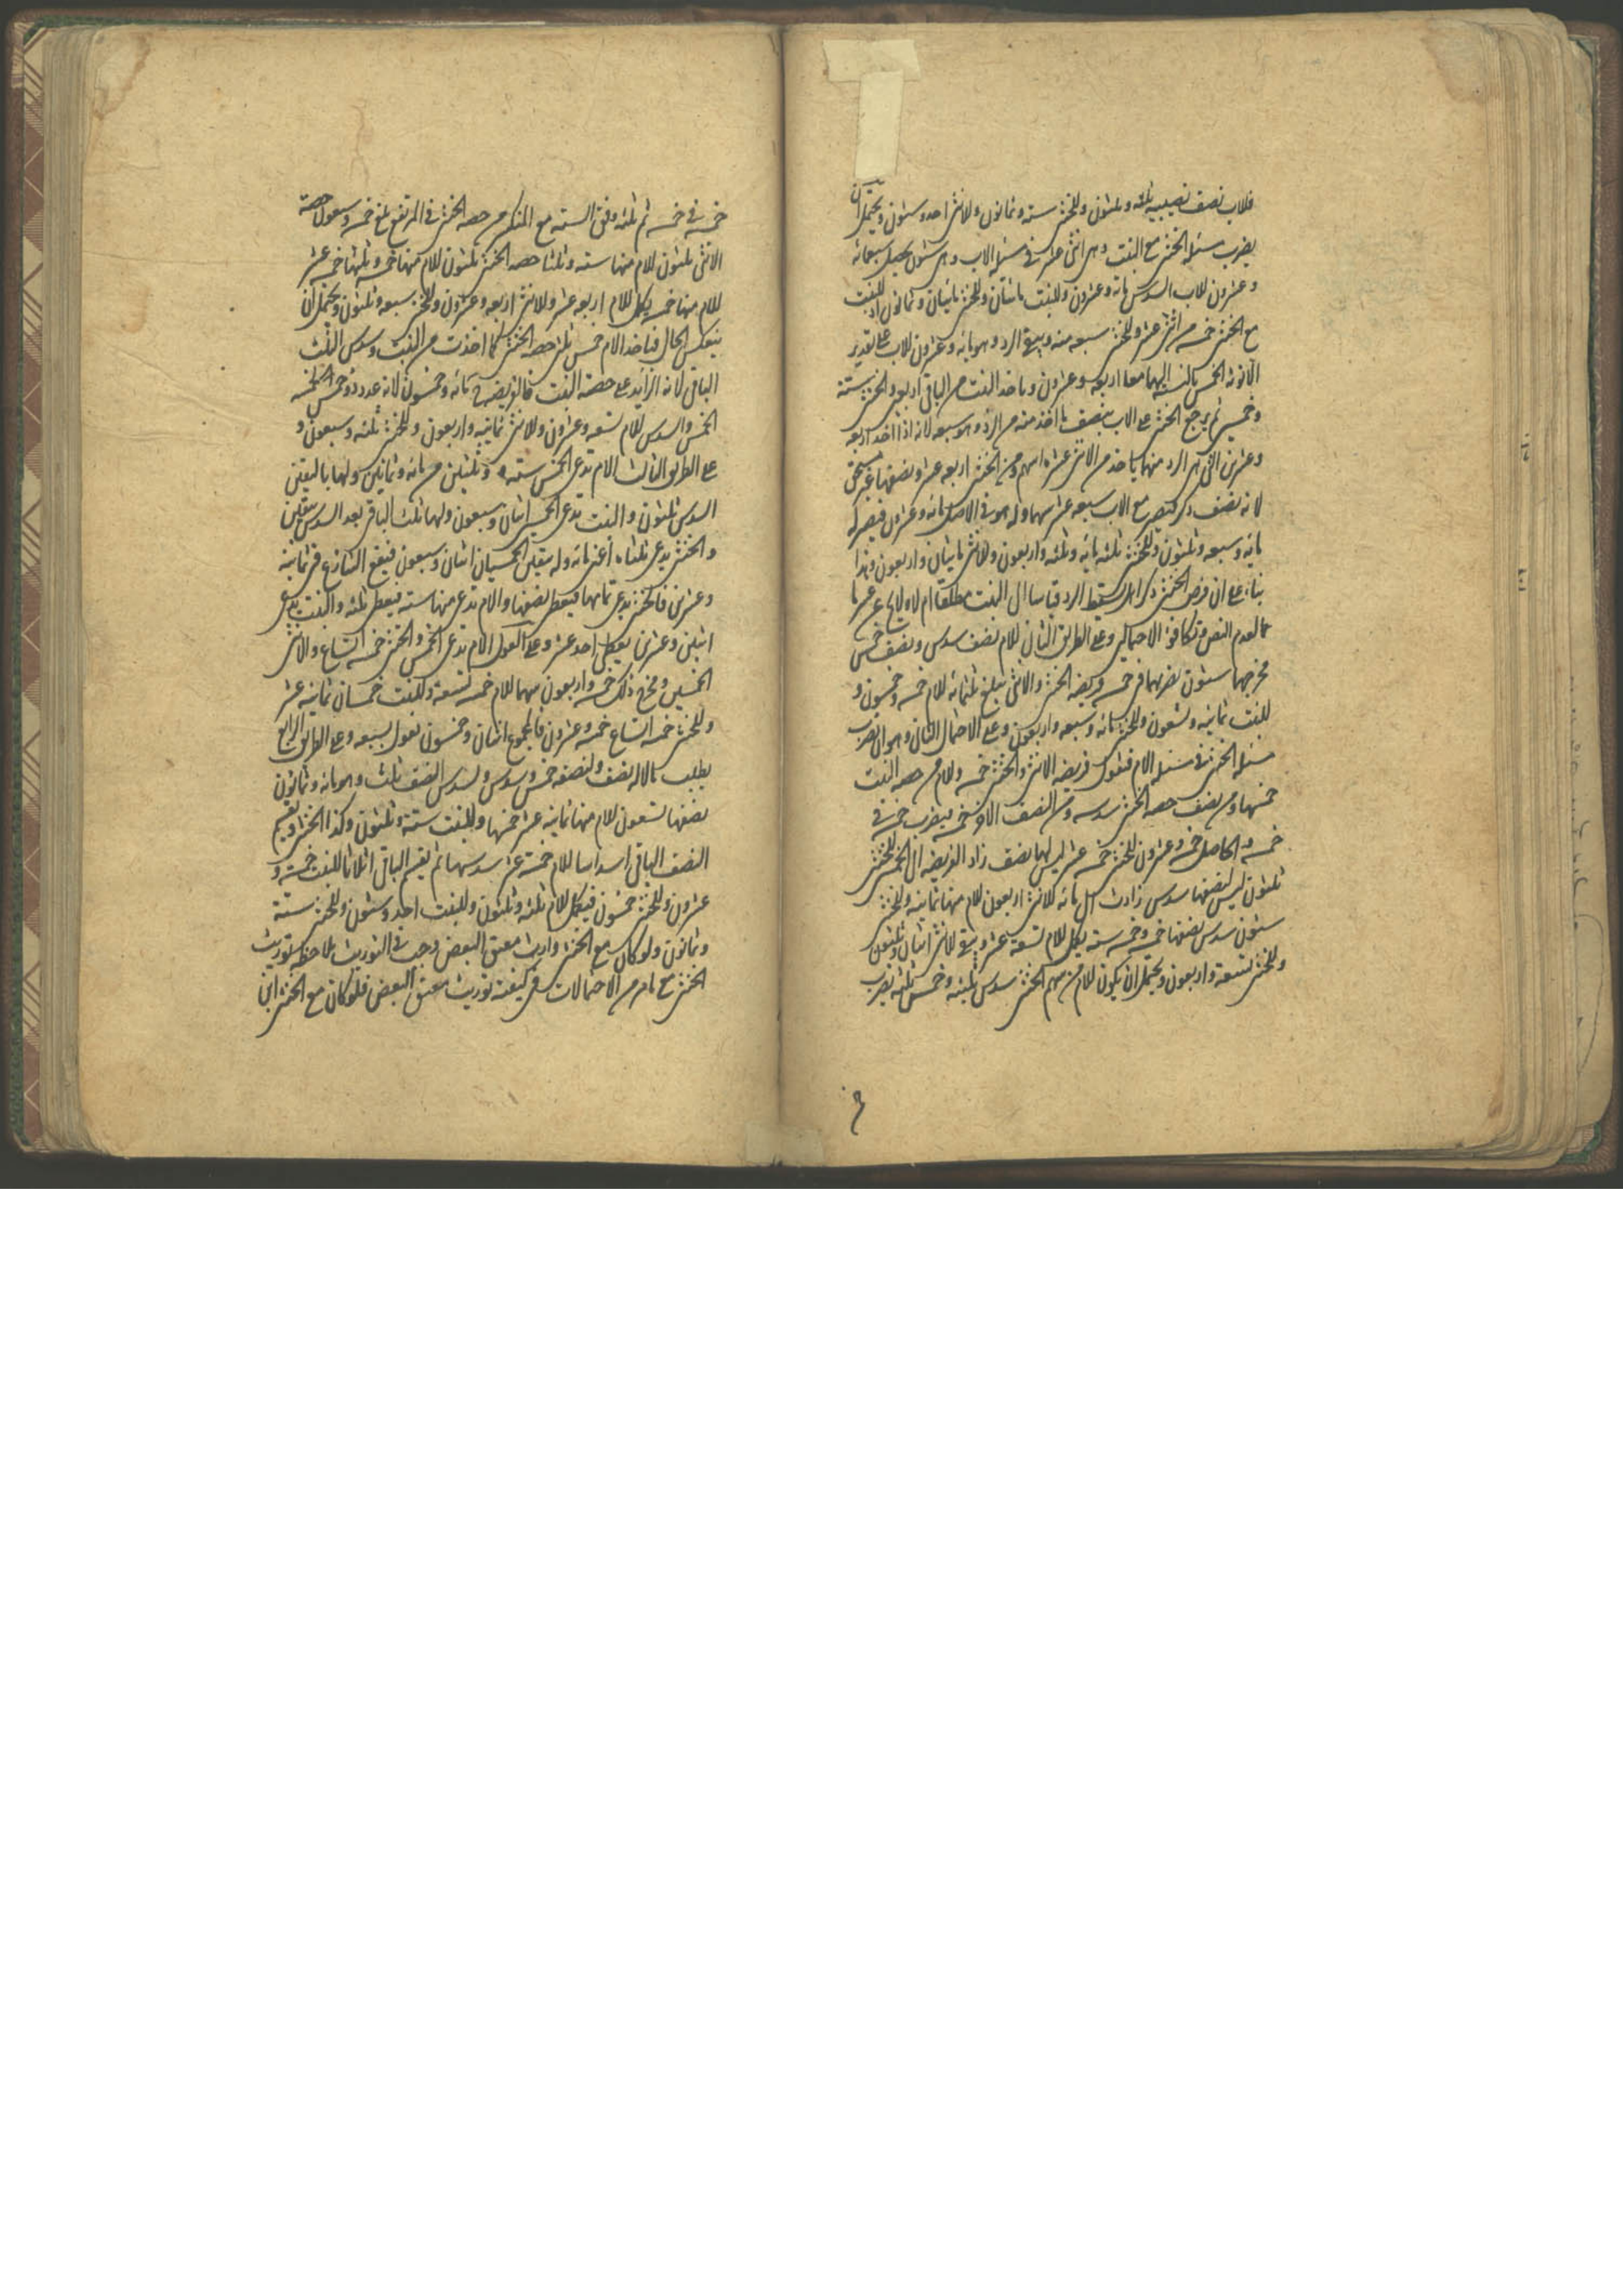 فللاب نصف نصيبيه ثلثه وثلثون وللخنثى ستة وثمانون وللانثى احد وستون ويحتمل ان
يضرب مسئلة الخنثى مع البنت وهى اثنى عشر فى مسئلة الاب وهى ستون يحصل سبعمائه
وعشرون للاب السدس مائة وعشرون وللبنت مائتان وللخنثى مائتان وثمانون اذ للبنت
مع الخنثى خمسه من اثنى عشر وللخنثى سبعه منه ويبقى الرد وهو مائه وعشرون للاب على تقدير
الانوثه الخمس بالنسبة اليهما معا اربعه وعشرون وياخذ البنت من الباقى اربعين والخنثى ستة
وخمسين ثم يرجع الخنثى على الاب بنصف ما اخذ منه من الرد وهو سبعه لانه اذا اخذ اربعة
وعشرين التى هى الرد منهما ياخذ من الانثى عشرة اسهم ومن الخنثى اربعه عشر ونصفها غير مستحق
لانه نصف ذكر فيصير مع الاب سبعه عشر سهما وله هو فى الاصل مائه وعشرون فيصير له
مائه وسبعه وثلثون وللخنثى ثلثه مائه وثلثه واربعون وللانثى مائتان واربعون وهذا
بناء على ان فرض الخنثى ذكرا هل يسقط الرد قياسا الى البنت مطلقا ام لا ولا يخ عن عسر ما
عما لعدم النص وتكافؤ الاحتمالين وعلى الطريق الثانى للام نصف سدس ونصف خمس
مخرجهما ستون نضربهما فى خمسه فريضه الخنثى والانثى تبلغ ثلثمائه للام خمسه وخمسون و
للبنت ثمانيه وتسعون وللخنثى مائه وسبعه واربعون وعلى الاحتمال الثانى وهو ان نضرب
مسئله الخنثى فى مسئله الام فنقول فريضه الانثى والخنثى خمسه وللام من حصه البنت
خمسها ومن نصف حصه الخنثى سدسه ومن النصف الاخر خمسه فيضرب خمسه فى
خمسه والحاصل خمسه وعشرون للخنثى خمسه عشر ليس لها نصف زاد الفريضه الى الخمسين للخنثى
ثلثون ليس لنصفها سدس زادت الى مائه للانثى اربعون للام منها ثمانيه وللخنثى
ستون سدس نصفها خمسه وخمسه ستة يكمل للام تسعة عشر ويبقى للانثى اثنان وثلثون
وللخنثى تسعة واربعون ويحتمل ان يكون للام من سهم الخنثى سدس ثلثيه وخمس ثلثه نضرب
خمسه فى خمسه ثم ثلثه وفق السته مع المنكسر من حصه الخنثى فى المرتفع تبلغ خمسه وسبعون حصة
الانثى ثلثون للام منها سته وثلثا حصه الخنثى ثلثون للام منها خمسه وثلثها خمسه عشر
للام منها خمسه يكمل للام اربعه عشر وللانثى اربعه وعشرون وللخنثى سبعه وثلثون ويحتمل ان
ينعكس الحال فياخذ الام خمس ثلثى حصه الخنثى كما اخذت من البنت وسدس الثلث
الباقى لانه الزايد على حصة البنت فالفريضه ح مائه وخمسون لانه عدد ذو خمس لخمسه
الخمس والسدس للام تسعه وعشرون وللانثى ثمانيه واربعون وللخنثى ثلثه وسبعون و
على الطريق الثالث الام تدعى الخمس سته وثلثين من مائه وثمانين ولها باليقين
السدس ثلثون والبنت تدعى الخمسين اثنان وسبعون ولهما ثلث الباقى بعد السدس بيقين
والخنثى يدعى ثلثاه اعنى مائه وله بيقين الخمسان اثنان وسبعون فيقع التنازع فى ثمانيه
وعشرين فالخنثى يدعى تمامها فيعطى نصفها والام تدعى منها سته فيعطى ثلثه والبنت يدعى
اثنين وعشرين يعطى احد عشر وعلى العول الام تدعى الخمس والخنثى خمسه اتساع والانثى
الخمسين ومخرج ذلك خمسه واربعون سهما للام خمسه تسعة وللبنت خمسان ثمانيه عشر
وللخنثى خمسه اتساع خمسه وعشرون فالمجموع اثنان وخمسون تعول بسبعه وعلى الطريق الرابع
يطلب مالا له نصف ولنصفه خمس وسدس ولسدس النصف ثلث وهو مائه وثمانون
نصفها تسعون للام منها ثمانيه عشر خمسها وللبنت ستة وثلثون وكذا الخنثى ويقسم
النصف الباقى اسداسا للام خمسة عشر سدسها ثم يقسم الباقى اثلاثا للبنت خمسة و
عشرون وللخنثى خمسون فيكمل للام ثلثه وثلثون وللبنت احد وستون وللخنثى ستة
وثمانون ولو كان مع الخنثى وارث معتق البعض وجب فى التوريث ملاحظه توريث
الخنثى مع ما مر من الاحتمالات فى كيفية توريث معتق البعض فلو كان مع الخنثى ابن